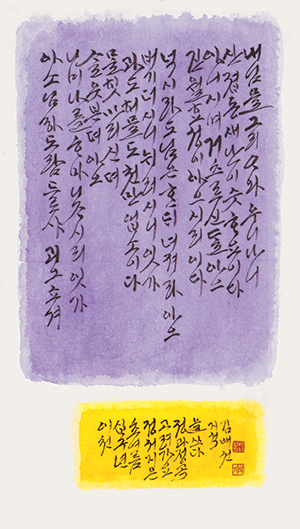 내님믈 그리ᄉᆞ와 우니다니
산졉동새 난 이슷ᄒᆞ요이다
아니시며 거츠르신 ᄃᆞᆯ 아으
잔월효성이 아ᄅᆞ시리이다
넉시라도 님은 ᄒᆞᆫᄃᆡ 녀져라 아으
벼기더시니 뉘러시니잇가
과도 허믈도 천만 업소이다
ᄆᆞᆯ힛 마리신뎌
ᄉᆞᆯ읏븐뎌 아으
니미 나ᄅᆞᆯ ᄒᆞ마 니ᄌᆞ시니잇가
아소 님하 도람 드르샤 괴오쇼셔
이천
십구년
초여름
정서지은
고려가요
정과정곡
을쓰다